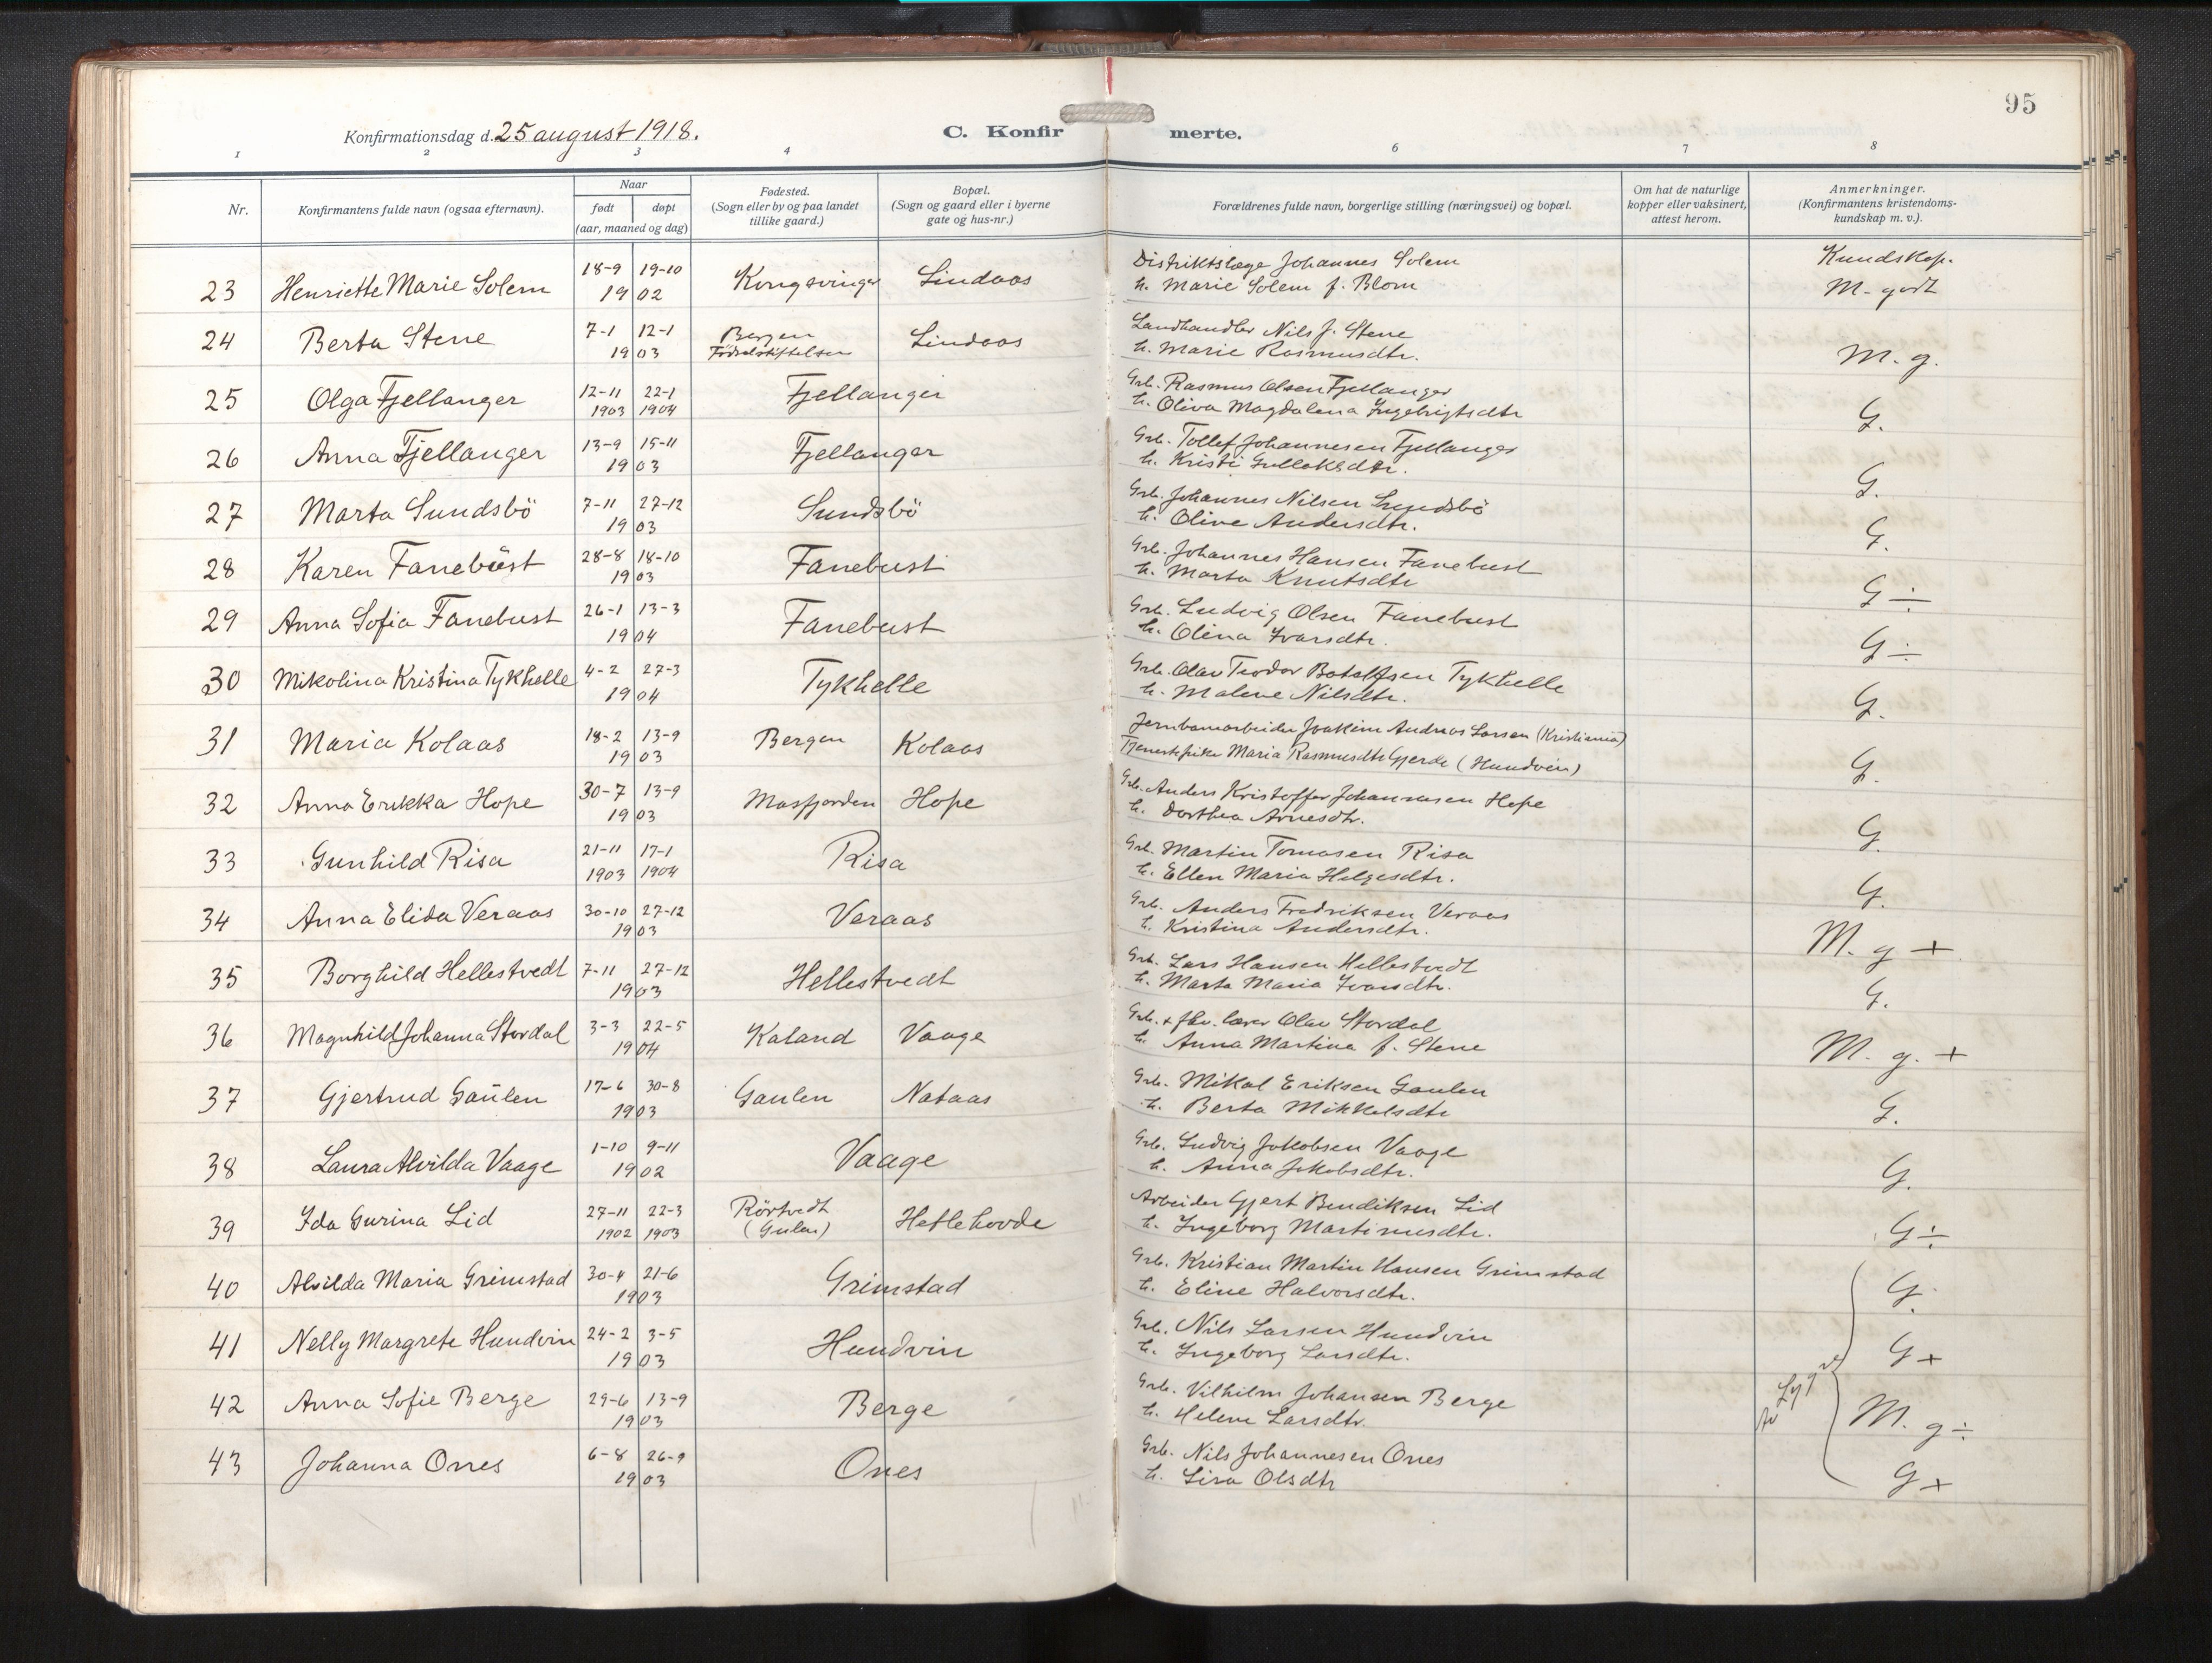 95
Konfirmationsdag d. 25 august 1918.
C. Konfirmerte.
1 2 3 4 6 7 8
Nr.
Konfirmantens fulde navn (ogsaa efternavn).
Naar
født døpt
(aar, maaned og dag)
Fødested.
(Sogn eller by og paa landet
tillike gaard.)
Bopæl.
(Sogn og gaard eller i byerne
gate og hus-nr.)
Forældrenes fulde navn, borgerlige stilling (næringsvei) og bopæl.
Om hat de naturlige
kopper eller vaksinert,
attest herom.
Anmerkninger.
(Konfirmantens kristendoms-
kundskap m. v.).
23 Henriette Marie Solem 18-9 19-10 1902 Kongsvinger Lindaas
Distriktslæge Johannes Solem
h. Marie Solem f. Blom
Kundskap.
M. godt
24 Berta Stene 7-1 12-1 1903 Bergen Fødselsstiftelsen Lindaas
Landhandler Nils J. Stene
h. Marie Rasmusdtr.
M. g.
25 Olga Fjellanger 12-11 1903 22-1 1904 Fjellanger
Grb. Rasmus Olsen Fjellanger
h. Oliva Magdalena Ingebrigtsdtr
G.
26 Anna Fjellanger 13-9 15-11 1903 Fjellanger
Grb. Tollef Johannesen Fjellanger
h. Kristi Gulleksdtr.
G.
27 Marta Sundsbö 7-11 27-12 1903 Sundsbö
Grb. Johannes Nilsen Sundsbö
h. Olive Andersdtr.
G.
28 Karen Fanebust 28-8 18-10 1903 Fanebust
Grb. Johannes Hansen Fanebust
h. Marta Knutsdtr
G ÷
29 Anna Sofia Fanebust 26-1 13-3 1904 Fanebust
Grb. Ludvig Olsen Fanebust
h. Olina Ivarsdtr.
G ÷
30 Mikolina Kristina Tykhelle 4-2 27-3 1904 Tykhelle
Grb. Olav Teodor Botolfsen Tykhelle
h. Malene Nilsdtr.
G.
31 Maria Kolaas 18-2 13-9 1903 Bergen Kolaas
Jernbanearbeider Joakim Andreas Larsen (Kristiania)
Tjenestepike Maria Rasmusdtr Gjerde (Hundvin)
G.
32 Anna Erikka Hope 30-7 13-9 1903 Masfjorden Hope
Grb. Anders Kristoffer Johannesen Hope
h. Dorthea Arnesdtr.
G.
33 Gunhild Risa 21-11 1903 17-1 1904 Risa
Grb. Martin Tomasen Risa
h. Ellen Maria Helgesdtr.
G.
34 Anna Elida Veraas 30-10 27-12 1903 Veraas
Grb. Anders Fredriksen Veraas
h. Kristina Andersdtr.
M. g +
35 Borghild Hellestvedt 7-11 27-12 1903 Hellestvedt
Grb. Lars Hansen Hellestvedt
h. Marta Maria Ivarsdtr.
G.
36 Magnhild Johanna Stordal 3-3 22-5 1904 Kaland Vaage
Grb. + fhv. lærer Olav Stordal
h. Anna Martina f. Stene
M. g. +
37 Gjertrud Gaulen 17-6 30-8 1903 Gaulen Nataas
Grb. Mikal Eriksen Gaulen
h. Berta Mikkelsdtr
G.
38 Laura Alvilda Vaage 1-10 9-11 1902 Vaage
Grb. Ludvig Jakobsen Vaage
h. Anna Jakobsdtr.
G.
39 Ida Gurina Lid 27-11 1902 22-3 1903 Rörtvedt (Gulen) Hetlehovde
Arbeider Gjert Bendiksen Lid
h. Ingeborg Martinusdtr.
G ÷
40 Alvilda Maria Grimstad 30-4 21-6 1903 Grimstad
Grb. Kristian Martin Hansen Grimstad
h. Eline Halvorsdtr.
G.
41 Nelly Margrete Hundvin 24-2 3-5 1903 Hundvin
Grb. Nils Larsen Hundvin
h. Ingeborg Larsdtr.
G +
42 Anna Sofie Berge 29-6 13-9 1903 Berge
Grb. Vilhelm Johansen Berge
h. Helene Larsdtr.
M. g ÷
43 Johanna Ones 6-8 26-9 1903 Ones
Grb. Nils Johannesen Ones
h. Lisa Olsdtr
G +